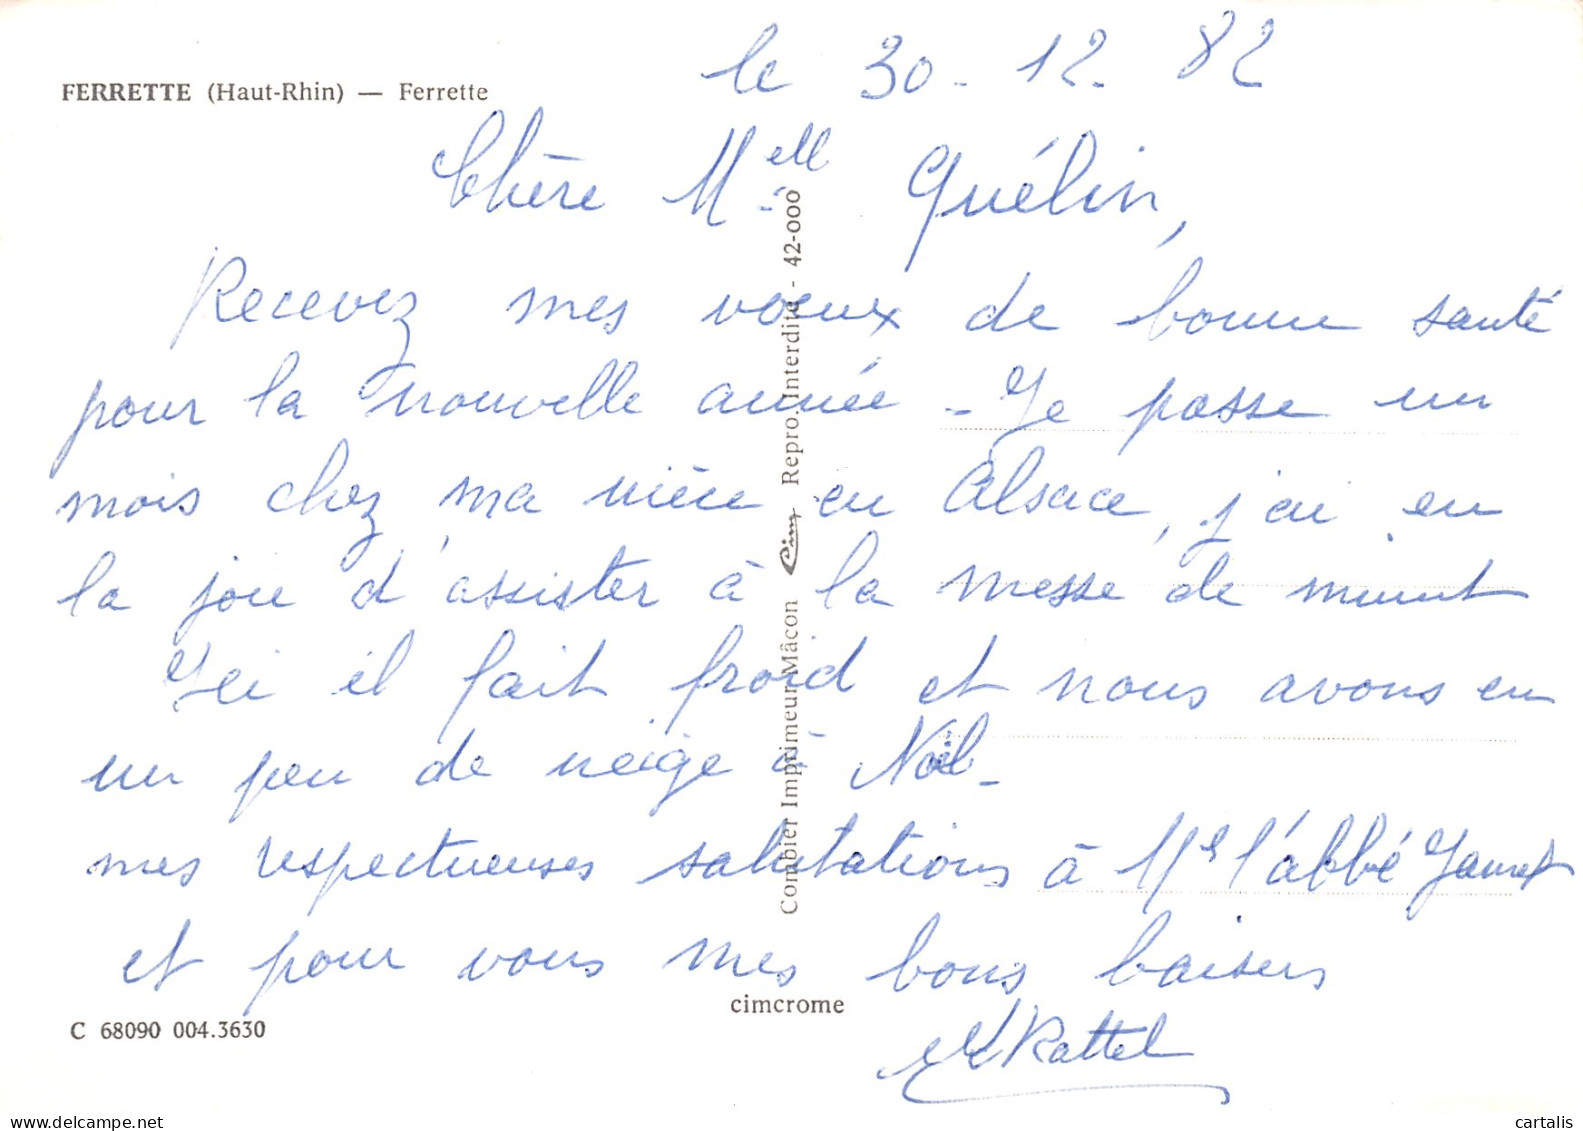 FERRETTE (Haut-Rhin) — Ferrette
le 30-12-82
Chère Mell Guélin,
Recevez mes voeux de bonne santé
pour la nouvelle année - Je passe un
mois chez ma nièce en Alsace, j'ai eu
la joie d'assister à la messe de minuit
Ici il fait froid et nous avons eu
un peu de neige à Noël -
mes respectueuses salutations à Mr l'abbé
et pour vous mes bons baisers
Rattel
Combier Imprimeur Mâcon Cim Repro. Interdite - 42-000
cimcrome
C 68090 004.3630
www.delcampe.net
cartalis